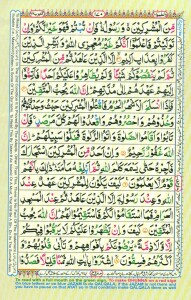 مِّنَ الْمُشْرِكِيْنَ ۙ وَرَسُوْلُهٗ ؕ فَاِنْ تُبْتُمْ فَهُوَ خَيْرٌ لَّكُمْ ۚ وَاِنْ
تَوَلَّيْتُمْ فَاعْلَمُوْۤا اَنَّكُمْ غَيْرُ مُعْجِزِى اللّٰهِ ؕ وَبَشِّرِ الَّذِيْنَ
كَفَرُوْا بِعَذَابٍ اَلِيْمٍ ۙ اِلَّا الَّذِيْنَ عَاهَدْتُّمْ مِّنَ
الْمُشْرِكِيْنَ ثُمَّ لَمْ يَنْقُصُوْكُمْ شَيْئًا وَّلَمْ يُظَاهِرُوْا عَلَيْكُمْ اَحَدًا فَاَتِمُّوْۤا
اِلَيْهِمْ عَهْدَهُمْ اِلٰى مُدَّتِهِمْ ؕ اِنَّ اللّٰهَ يُحِبُّ الْمُتَّقِيْنَ
فَاِذَا انْسَلَخَ الْاَشْهُرُ الْحُرُمُ فَاقْتُلُوا الْمُشْرِكِيْنَ حَيْثُ
وَجَدْتُّمُوْهُمْ وَخُذُوْهُمْ وَاحْصُرُوْهُمْ وَاقْعُدُوْا لَهُمْ كُلَّ
مَرْصَدٍ ۚ فَاِنْ تَابُوْا وَاَقَامُوا الصَّلٰوةَ وَاٰتَوُا الزَّكٰوةَ فَخَلُّوْا سَبِيْلَهُمْ ؕ اِنَّ
اللّٰهَ غَفُوْرٌ رَّحِيْمٌ وَاِنْ اَحَدٌ مِّنَ الْمُشْرِكِيْنَ اسْتَجَارَكَ
فَاَجِرْهُ حَتّٰى يَسْمَعَ كَلٰمَ اللّٰهِ ثُمَّ اَبْلِغْهُ مَاْمَنَهٗ ؕ ذٰلِكَ بِاَنَّهُمْ
قَوْمٌ لَّا يَعْلَمُوْنَ كَيْفَ يَكُوْنُ لِلْمُشْرِكِيْنَ عَهْدٌ
عِنْدَ اللّٰهِ وَعِنْدَ رَسُوْلِهٖۤ اِلَّا الَّذِيْنَ عَاهَدْتُّمْ عِنْدَ
الْمَسْجِدِ الْحَرَامِ ۚ فَمَا اسْتَقَامُوْا لَكُمْ فَاسْتَقِيْمُوْا لَهُمْ ؕ اِنَّ اللّٰهَ
يُحِبُّ الْمُتَّقِيْنَ كَيْفَ وَاِنْ يَّظْهَرُوْا عَلَيْكُمْ لَا يَرْقُبُوْا
فِيْكُمْ اِلًّا وَّلَا ذِمَّةً ؕ يُرْضُوْنَكُمْ بِاَفْوَاهِهِمْ وَتَاْبٰى قُلُوْبُهُمْ ۚ